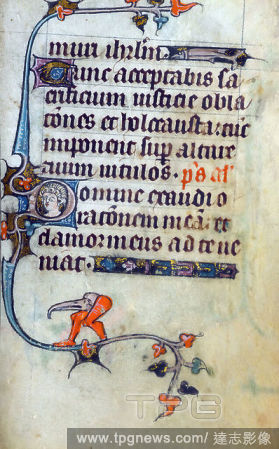 muri ihrlm
Tunc acceptabis sa
crificium iusticie obla
cōnes et holocausta: tūc
imponent sup altare
tuum uitulos. ps al'
Domine exaudi o
racōnem meā: et
clamor meus ad te ue
niat.
TPG
www.tpgnews.com/ 達志影像